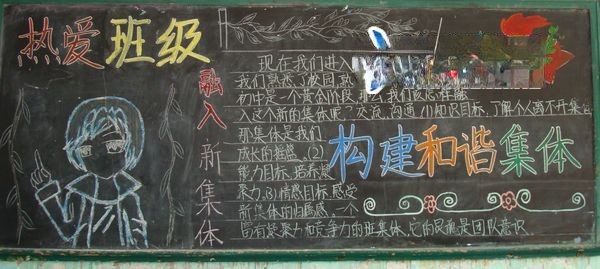 热爱班级
融入新集体
现在我们进入
我们熟悉了校园,熟
初中是一个黄金阶段,那么我们该怎样融
入这个新的集体呢?交流,沟通(1)知识目标,了解个人离不开集
那集体是我们
成长的摇篮(2)
能力目标,培养凝
聚力。(3)情感目标,感受
新集体的温暖感。一个
富有凝聚力和竞争力的班集体,它的灵魂是团队意识
构建和谐集体